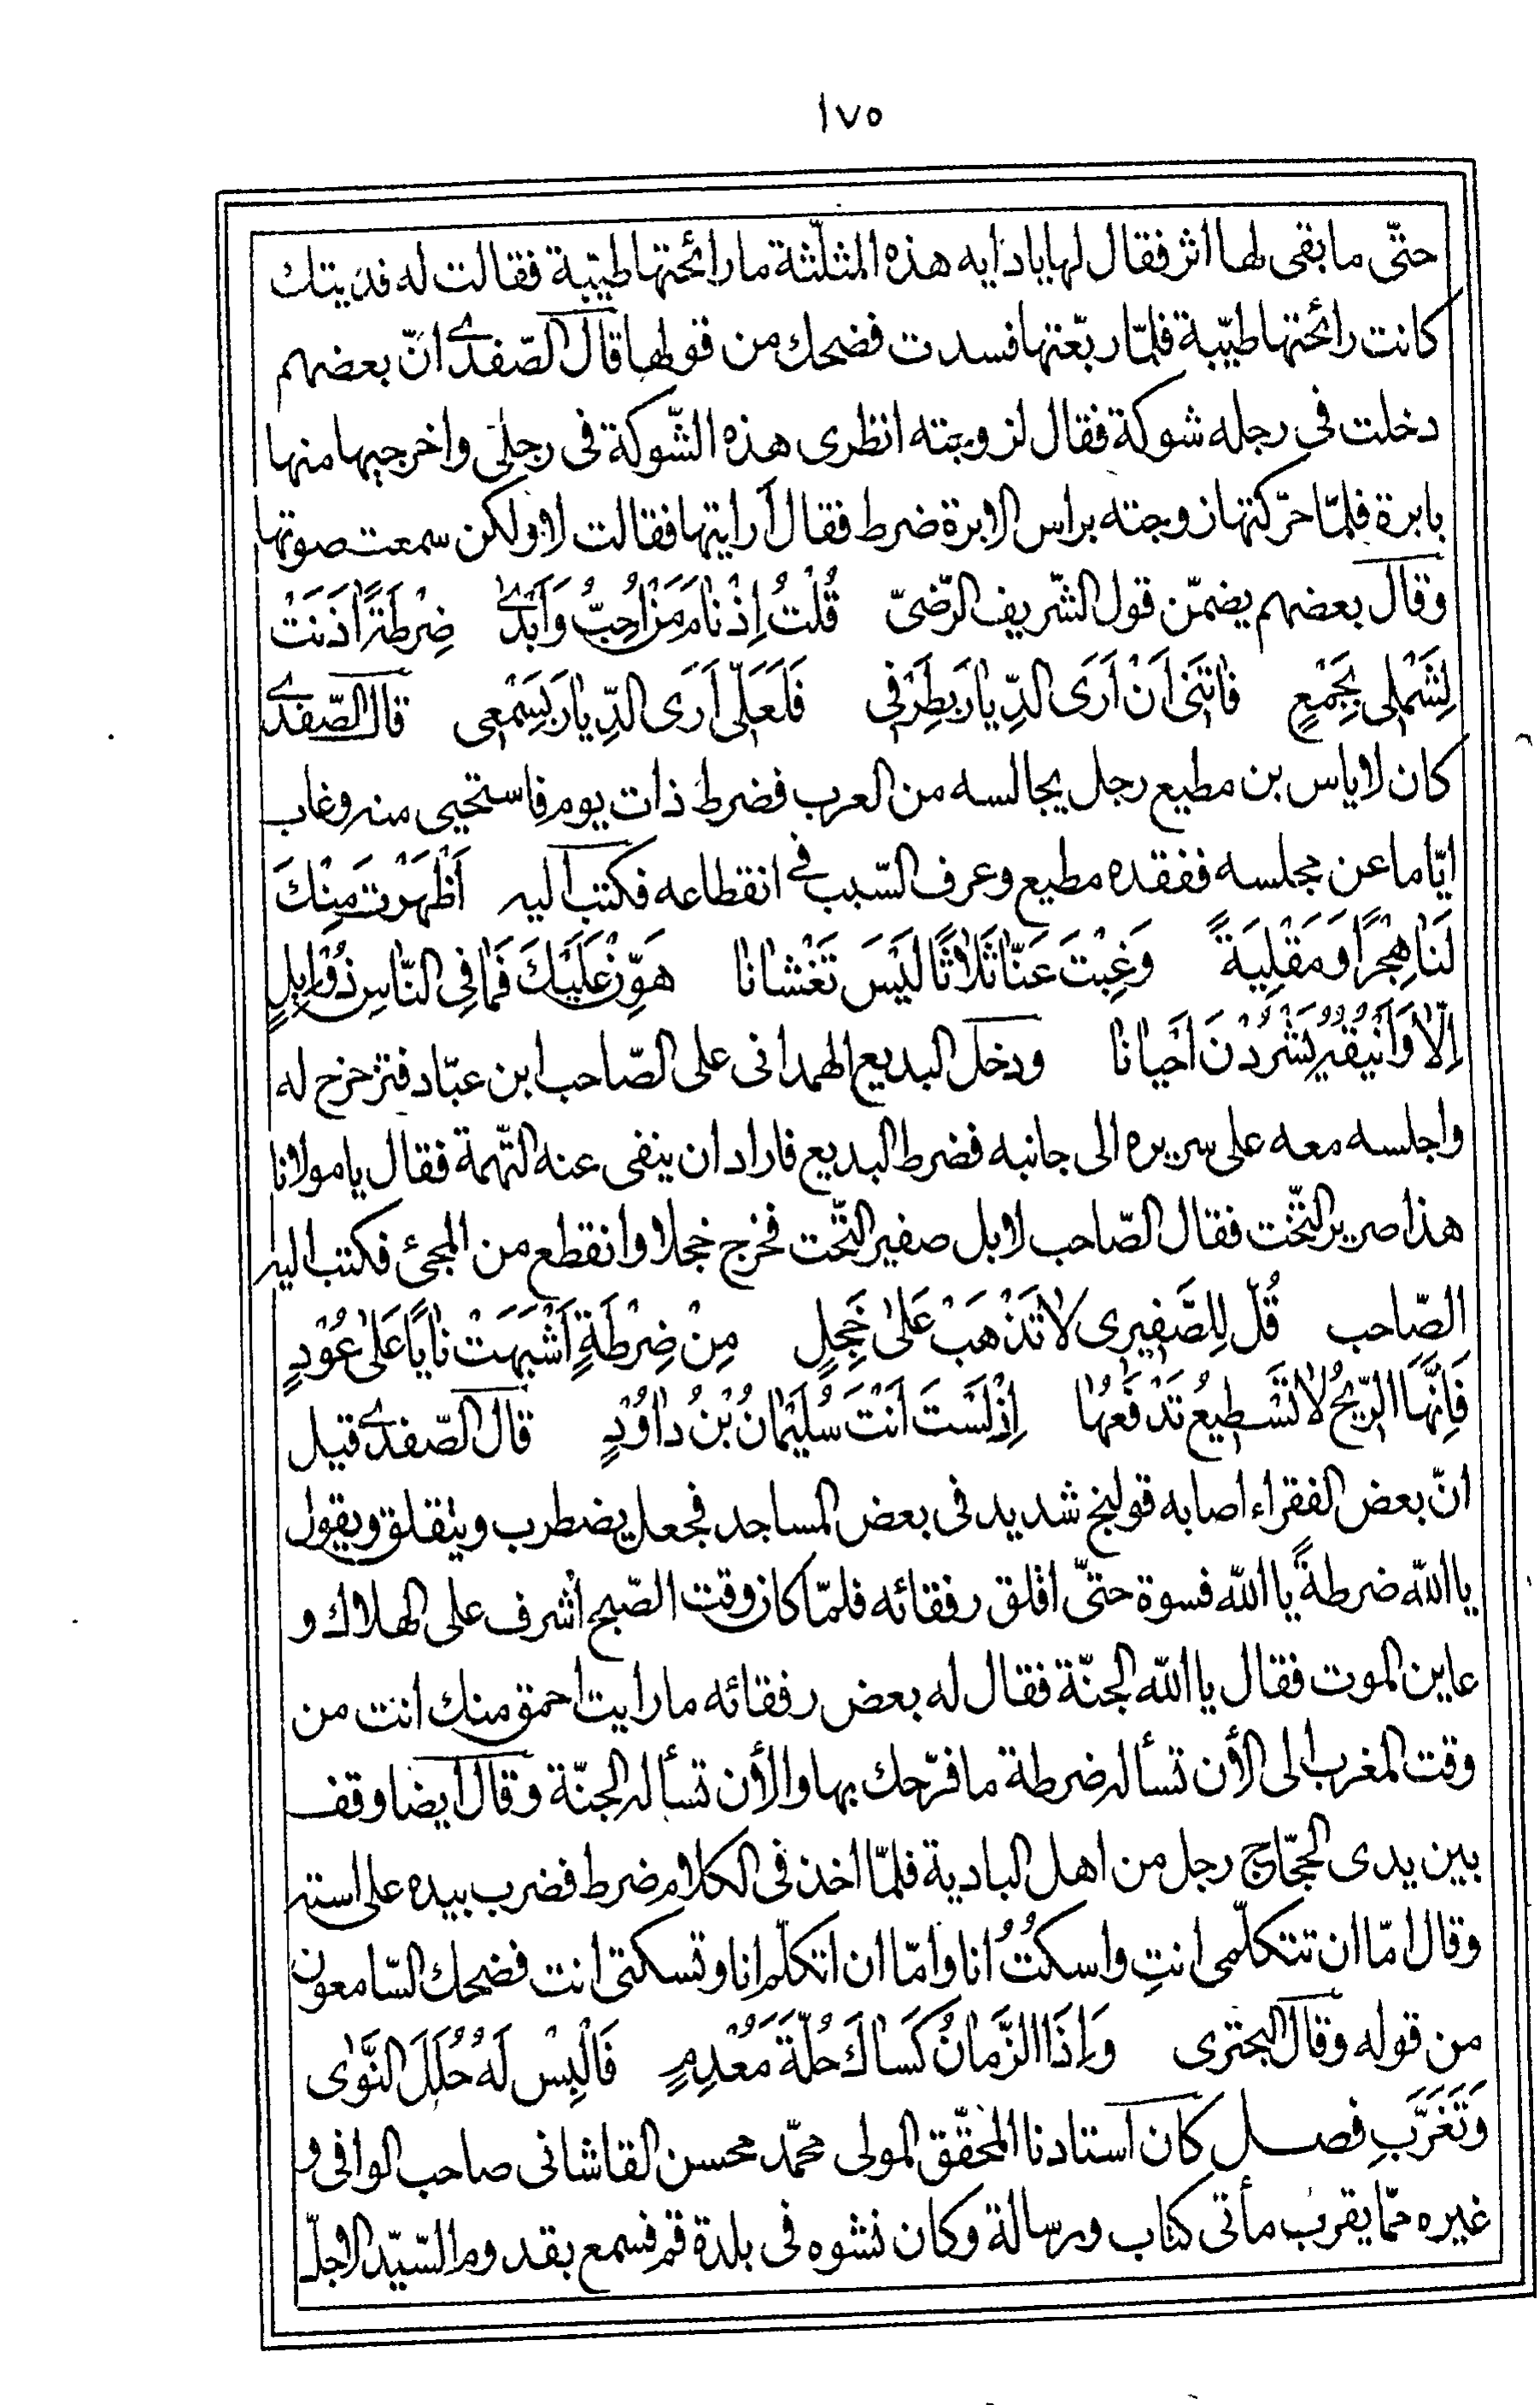 ١٧٥
حتّى ما بقى لها اثر فقال لها يا دايه هذه المثلّثة ما رائحتها طيّبة فقالت له فديتك
كانت رائحتها طيّبة فلمّا ربّعتها فسدت فضحك من قولها قال الصّفدى انّ بعضهم
دخلت فى رجله شوكة فقال لزوجته انظرى هذه الشّوكة فى رجلى واخرجيها منها
بابرة فلمّا حرّكتها زوجته براس الابرة ضرط فقال أرايتها فقالت لا ولكن سمعت صوتها
وقال بعضهم يضمّن قول الشّريف الرّضىّ قُلْتُ اِذْ نَامَ مَنْ اُحِبُّ وَاَبْدىٰ ضِرْطَةً اَذِنَتْ
لِشَمْلِى بِجَمْعٍ فاتَنى اَنْ اَرَى الدِّيارَ بِطَرْفى فَلَعَلّى اَرَى الدِّيارَ بِسَمْعى قال الصّفدى
كان لاياس بن مطيع رجل يجالسه من العرب فضرط ذات يوم فاستحيى منه وغاب
ايّاما عن مجلسه ففقده مطيع وعرف السّبب فى انقطاعه فكتب اليه اَظْهَرْتَ مِنْكَ
لَنا هِجْرًا وَمَقْلِيَةً وَغِبْتَ عَنّا ثَلاثًا لَيْسَ تَغْشانا هَوِّنْ عَلَيْكَ فَما فِى النّاسِ ذُو اِبِلٍ
اِلّا وَاَنْيُقُهُ يَشْرُدْنَ اَحْيانا ودخل البديع الهمدانى على الصّاحب ابن عبّاد فتزحزح له
واجلسه معه على سريره الى جانبه فضرط البديع فاراد ان ينفى عنه التّهمة فقال يا مولانا
هذا صرير التّخت فقال الصّاحب لا بل صفير التّحت فخرج خجلا وانقطع من المجئ فكتب اليه
الصّاحب قُلْ لِلصَّفيرى لا تَذْهَبْ عَلىٰ خَجِلٍ مِنْ ضِرْطَةٍ اَشْبَهَتْ نايًا عَلىٰ عُوْدٍ
فَاِنَّهَا الرّيحُ لا تَسْطيعُ تَدْفَعُها اِذْ لَسْتَ اَنْتَ سُلَيْمانُ بْنُ داوُدٍ قال الصّفدى قيل
انّ بعض الفقراء اصابه قولنج شديد فى بعض المساجد فجعل يضطرب ويتقلق ويقول
يا اللّه ضرطةً يا اللّه فسوة حتّى اقلق رفقائه فلمّا كان وقت الصّبح أشرف على الهلاك و
عاين الموت فقال يا اللّه الجنّة فقال له بعض رفقائه ما رايت احمق منك انت من
وقت المغرب الى الأن تسأله ضرطة ما فرّحك بها والأن تسأله الجنّة وقال ايضا وقف
بين يدى الحجّاج رجل من اهل البادية فلمّا اخذ فى الكلام ضرط فضرب بيده على استه
وقال امّا ان تتكلّمى انتِ واسكتُ انا وامّا ان اتكلّم انا وتسكتى انت فضحك السّامعون
من قوله وقال البحترى وَاِذَا الزَّمانُ كَساكَ حُلَّةَ مُعْدِمٍ فَالْبِسْ لَهُ حُلَلَ النَّوٰى
وَتَغَرَّبِ فصل كان استادنا المحقّق المولى محمّد محسن القاشانى صاحب الوافى و
غيره ممّا يقرب مأتى كتاب ورسالة وكان نشوه فى بلدة قم فسمع بقدوم السّيّد الاجلّ